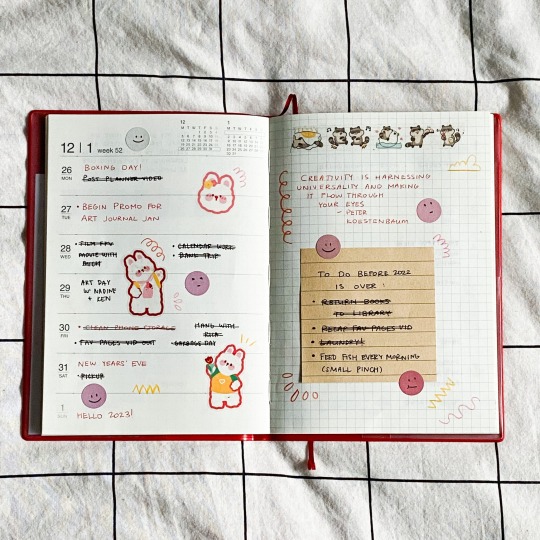 12 | 1 week 52
12
1
26
MON
BOXING DAY!
POST PLANNER VIDEO
27
TUE
• BEGIN PROMO FOR
ART JOURNAL JAN
28
WED
• FILM FAV
MOVIE WITH
• CALENDAR WORK
• BANK TRIP
29
THU
ART DAY
W/ NADINE
+ KEN
30
FRI
• CLEAN PHONE STORAGE
• FAV PAGES VID OUT
HANG WITH
RICA
• GARBAGE DAY
31
SAT
NEW YEARS' EVE
• PICKUP
1
SUN
HELLO 2023!
CREATIVITY IS HARNESSING
UNIVERSALITY AND MAKING
IT FLOW THROUGH
YOUR EYES
- PETER
KOESTENBAUM
TO DO BEFORE 2022
IS OVER:
• RETURN BOOKS
TO LIBRARY
• RECAP FAV PAGES VID
• LAUNDRY!
• FEED FISH EVERY MORNING
(SMALL PINCH)